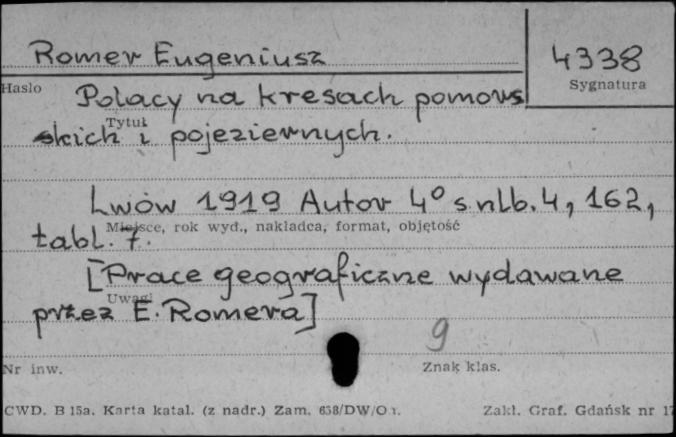 Romer Eugeniusz
4338
Hasło
Sygnatura
Polacy na kresach pomors
skich i pojeziernych.
Tytuł
Lwów 1919 Autor 4° s.nlb.4, 162,
Miejsce, rok wyd., nakładca, format, objętość
tabl. 7.
[Prace geograficzne wydawane
Uwagi
przez E. Romera]
9
Nr inw.
Znak klas.
CWD. B 15a. Karta katal. (z nadr.) Zam. 638/DW/O
Zakł. Graf. Gdańsk nr